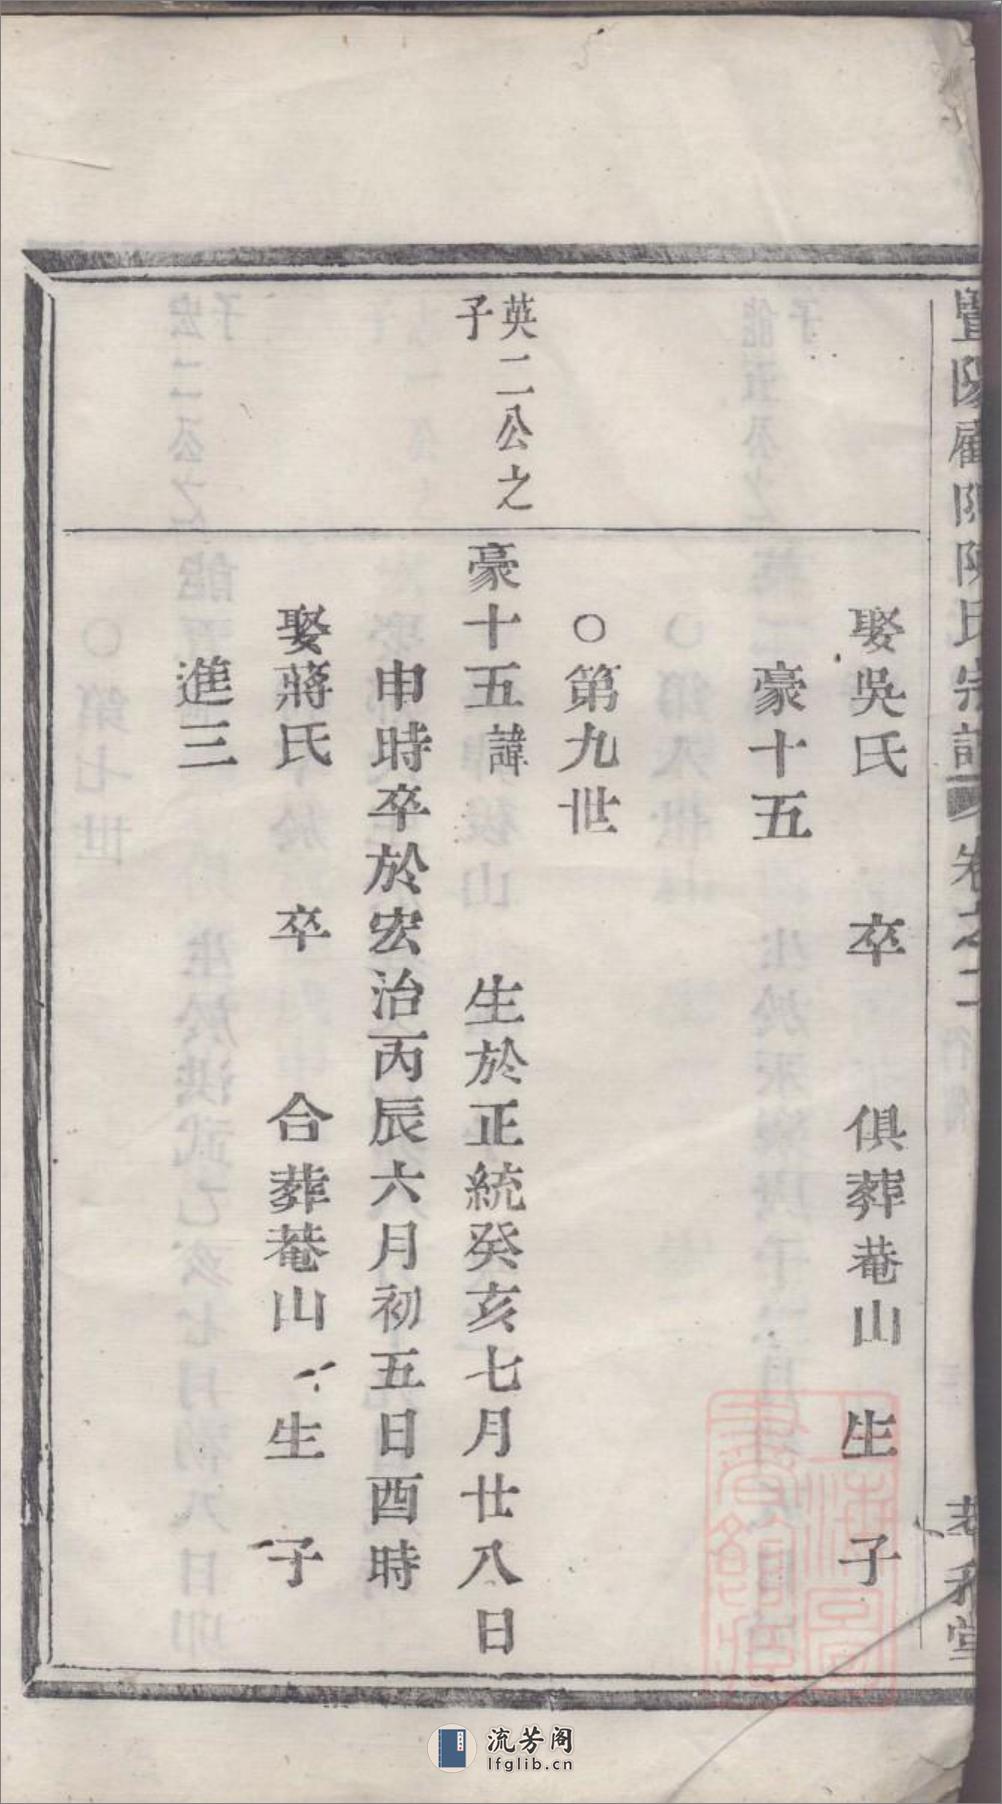 暨陽 陳氏宗譜 卷之二 堂
娶吳氏 卒 俱葬菴山 生 子
豪十五
○第九世
英二公之
子
豪十五諱 生於正統癸亥七月廿八日
申時卒於宏治丙辰六月初五日酉時
娶蔣氏 卒 合葬菴山 生 子
進三
流芳阁
lfglib.cn